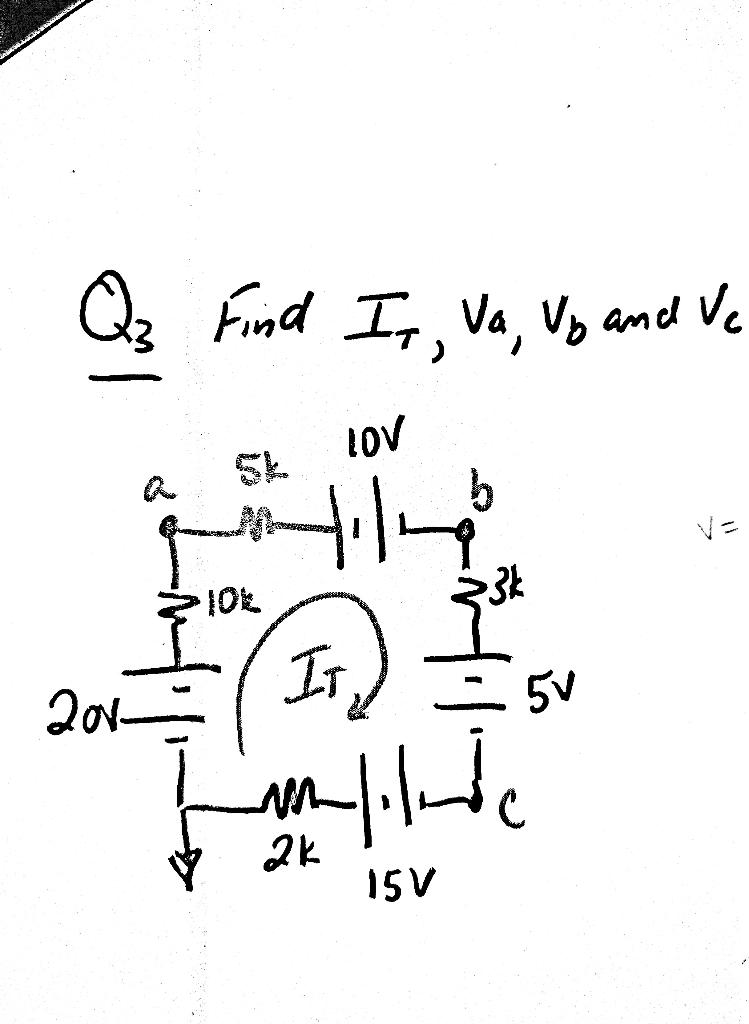 Q3 Find IT, Va, Vb and Vc
10V
a 5k b
V=
10k 3k
IT
20V 5V
C
2k
15V